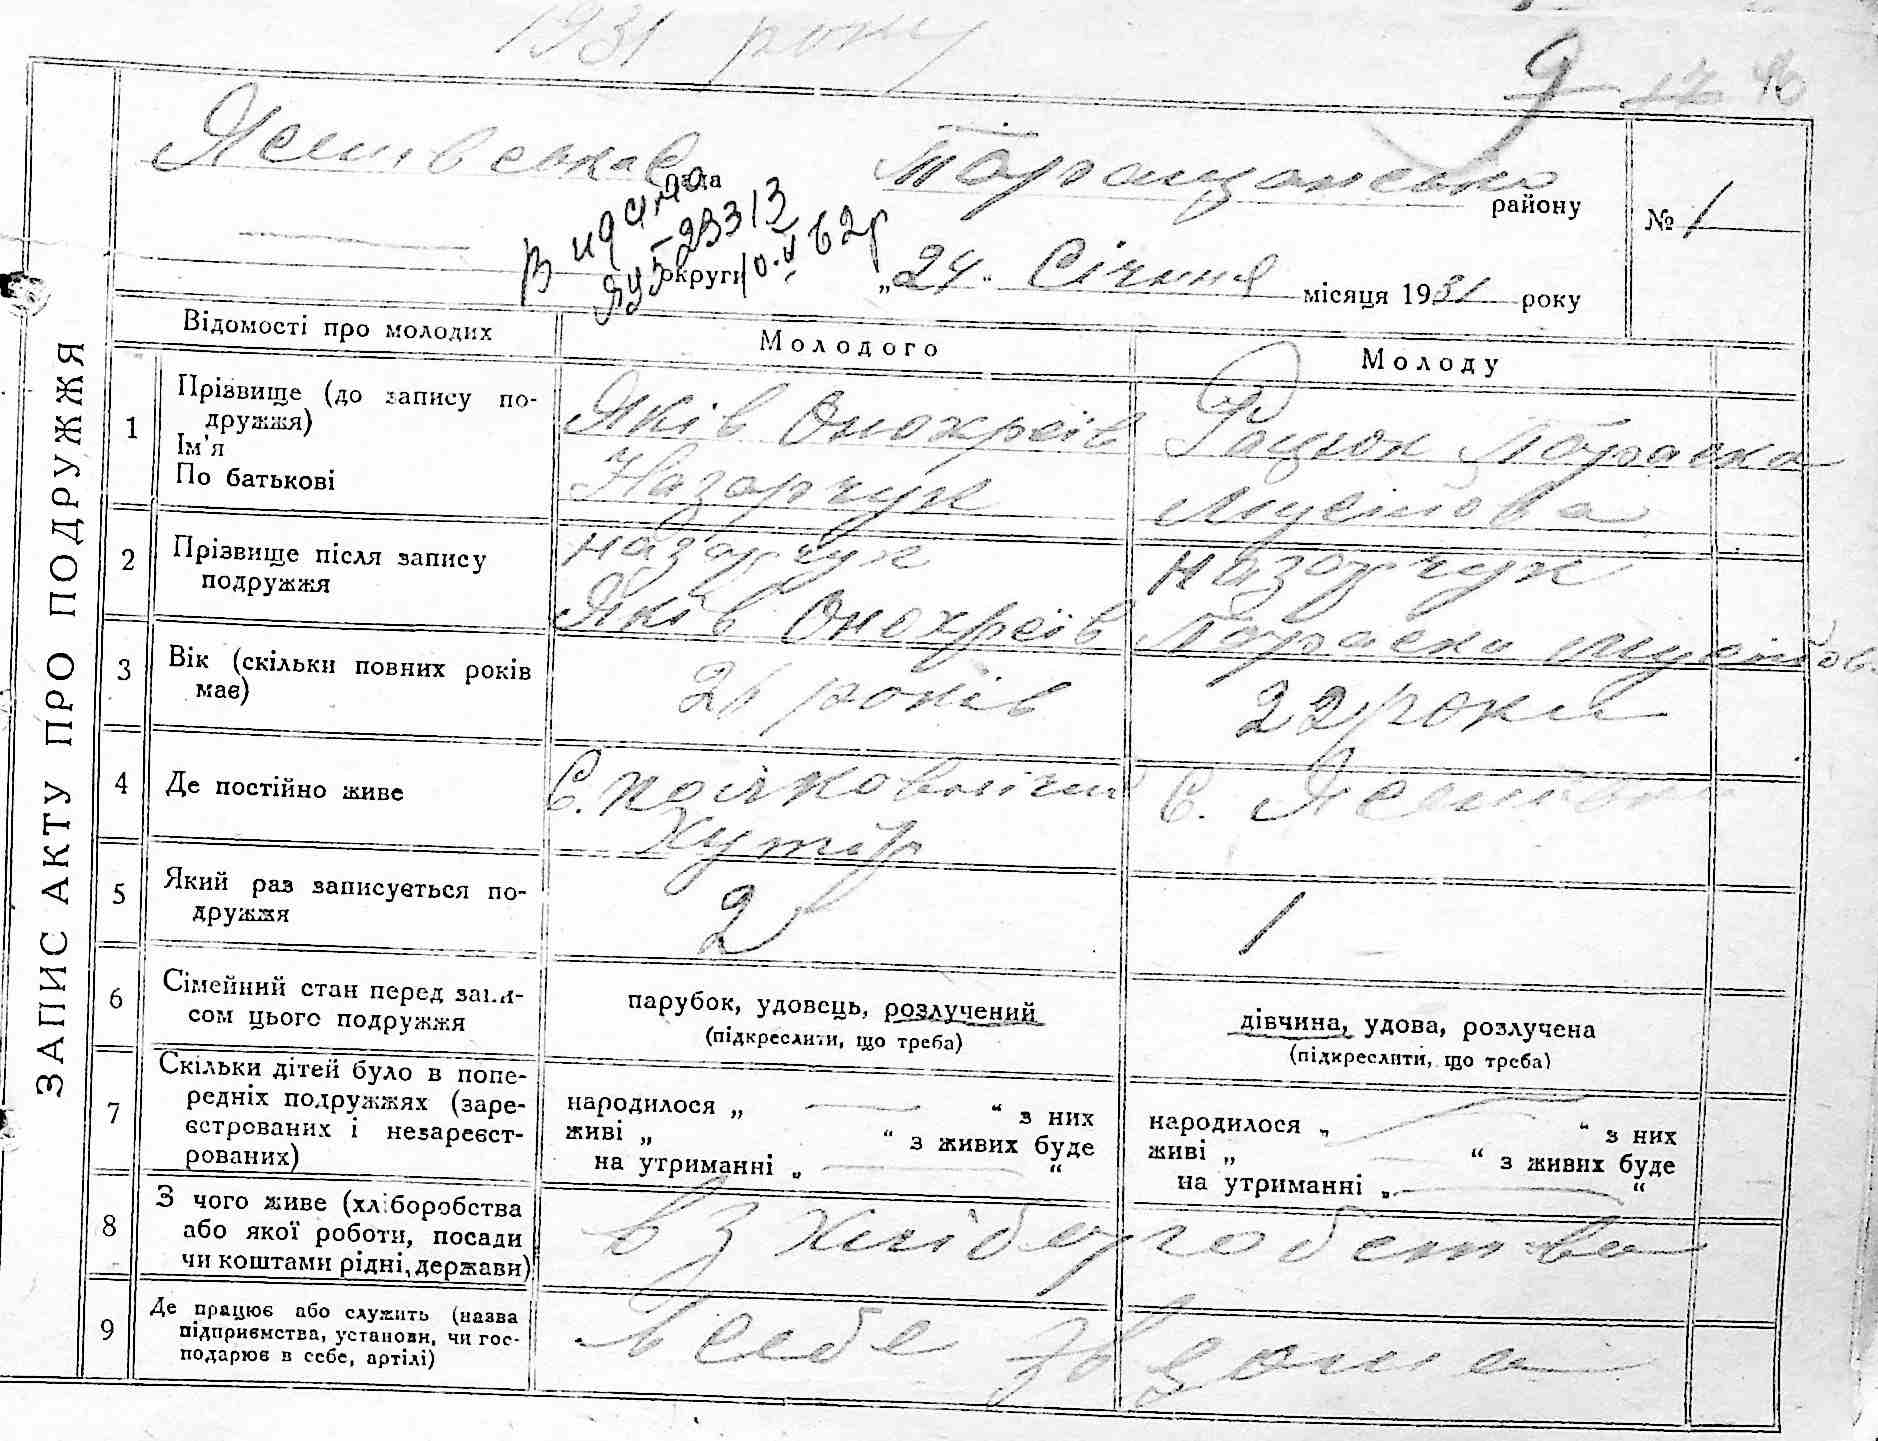 1931 року
9 17
Таращансько району
№ 1
Видано
округи
„24“ Січння місяця 1931 року
ЗАПИС АКТУ ПРО ПОДРУЖЖЯ
Відомості про молодих
Молодого
Молоду
1
Прізвище (до запису по-
дружжя)
Ім'я
По батькові
Яків Онохреїв
Назарчук
Рацюк Параска
Мусійова
2
Прізвище після запису
подружжя
Назарчук
Яків Онохреїв
Назарчук
Параска Мусійов
3
Вік (скільки повних років
має)
26 років
22 роки
4
Де постійно живе
С.
Хутір
С.
5
Який раз записується по-
дружжя
2
1
6
Сімейний стан перед запи-
сом цього подружжя
парубок, удовець, розлучений
(підкреслити, що треба)
дівчина, удова, розлучена
(підкреслити, що треба)
7
Скільки дітей було в попе-
редніх подружжях (заре-
єстрованих і незареєст-
рованих)
народилося „ — “ з них
живі „ “ з живих буде
на утриманні „ — “
народилося „ — “ з них
живі „ — “ з живих буде
на утриманні „ — “
8
З чого живе (хліборобства
або якої роботи, посади
чи коштами рідні, держави)
з хліборобства
9
Де працює або служить (назва
підприємства, установи, чи гос-
подарює в себе, артілі)
в себе вдома